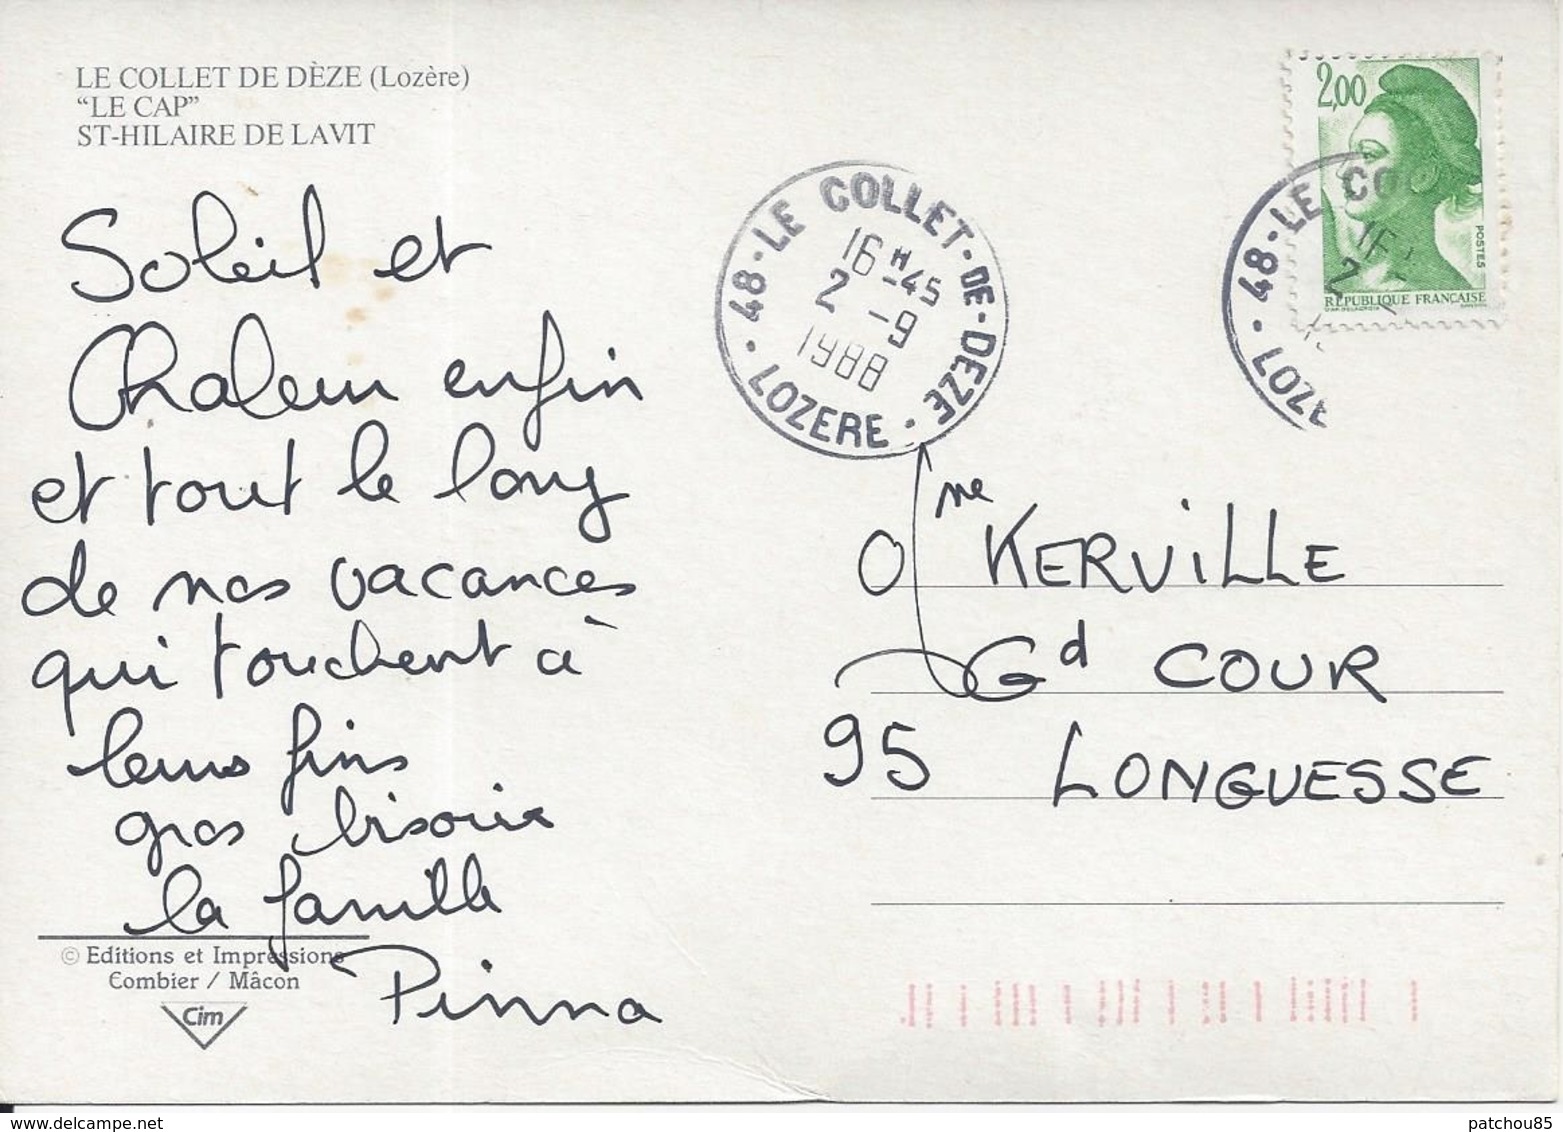 LE COLLET DE DÈZE (Lozère)
"LE CAP"
ST-HILAIRE DE LAVIT
Soleil et
Chaleur enfin
et tout le long
de nos vacances
qui touchent à
leurs fins
gros bisoux
la famille
Pinna
© Editions et Impressions
Combier / Mâcon
Cim
48 - LE COLLET-DE-DEZE - LOZERE -
16 H 45
2 - 9
1988
2,00
POSTES
RÉPUBLIQUE FRANÇAISE
48 - LE CO
16
2
LOZE
me KERVILLE
Gd COUR
95 LONGUESSE
patchou85